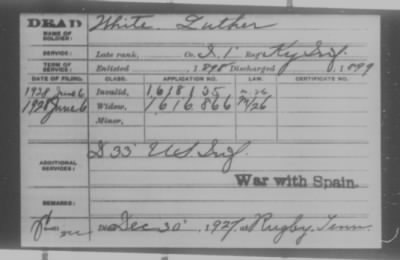 DEAD
NAME OF SOLDIER: White Luther
SERVICE: Late rank, Co. I, 1 Reg't Ky Inf.
TERM OF SERVICE: Enlisted , 1898 Discharged , 1899
DATE OF FILING. CLASS. APPLICATION NO. LAW. CERTIFICATE NO.
1928 June 6 Invalid, 1618135
1928 June 6 Widow, 1616866
Minor,
ADDITIONAL SERVICES: D 33 U.S. Inf.
War with Spain.
REMARKS:
Died Dec 30, 1927, at Rugby, Tenn.